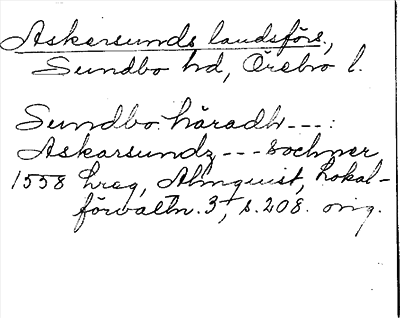 Askersunds landsförs.,
Sundbo hd, Örebro l.
Sundbo häradh ---:
Askarsundz --- sochner
1558 hreg, Almquist, Lokal-
förvaltn. 3, s. 208. orig.